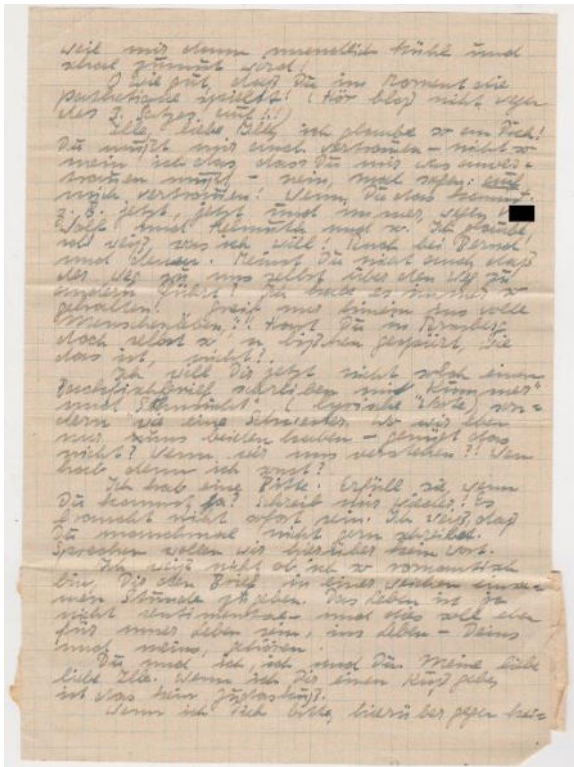 weil mir dann unendlich kühl und
zumut wird!
O wie gut, daß Du im Moment die
pathetische spielst! (Hör bloß nicht wegen
des 2. Satzes auf!!)
Illo, liebe Illo, ich glaube so an Dich!
Du mußt mir auch vertrauen – nicht so
mein ich das, dass Du mir was anver-
trauen mußt – nein, mal sagen: auf
mich vertrauen! Wenn Du das kannst.
z. B. jetzt, jetzt und immer, wegen
Wolf und Helmuth und so. Ich glaube,
ich weiß, was ich will! Auch bei Bernd
und . Meinst Du nicht auch daß
der Weg zu uns selbst über den Weg zu
andern führt? Ich habe es immer so
gehalten! Greif nur hinein ins volle
Menschenleben!! Hast Du in
doch selbst so'n bißchen gespürt, wie
das ist, nicht?
Ich will Dir jetzt nicht solch einen
schreiben mit "Kummer"
und Sehnsucht (lyrische ) son-
dern wie eine Schwester. Wo wir eben
nur uns beiden haben – genügt das
nicht? Wenn wir uns verstehen?! Wen
hab denn ich sonst?
Ich hab eine Bitte: Erfüll sie, wenn
Du kannst, ja? Schreib mir wieder! Es
braucht nicht sofort sein. Ich weiß, daß
Du manchmal nicht gern schreibst.
Sprechen wollen wir hierüber kein Wort.
Ich weiß nicht ob ich so romantisch
bin, Dir den Brief in einer weichen einsa-
men Stunde zu geben. Das Leben ist ja
nicht sentimental – und das soll eben
für unser Leben sein, ins Leben – Deins
und meins, gehören.
Du und ich, ich und Du. Meine liebe
liebe Illo. Wenn ich Dir einen Kuß gebe,
ist das kein Judaskuß.
Wenn ich Dich bitte, hierüber gegen kei-